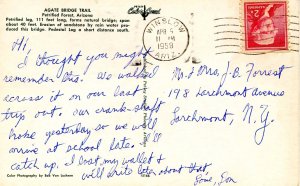 AGATE BRIDGE TRAIL
Petrified Forest, Arizona
Petrified log, 111 feet long, forms natural bridge; span about 40 feet. Erosion of sandstone by rain water produced this bridge. Pedestal Log a short distance south.
WINSLOW
APR 5
11 PM
1958
ARIZ.
2¢
Hi,
I thought you might
remember this. We walked
across it on our last
trip out. Our crank-shaft
broke yesterday so we will
arrive at school late. I'll
catch up. I lost my wallet &
will write later about that.
Love, Son
Mr. & Mrs. J. B. Forrest
198 Larchmont Avenue
Larchmont, N.Y.
Color Photography by Bob Van Luchene